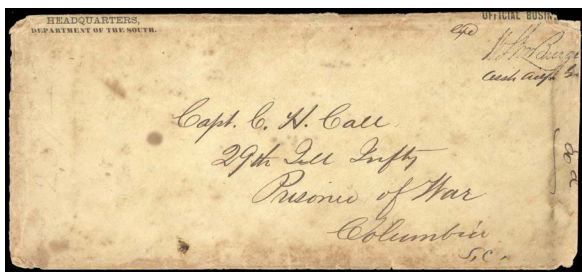 HEADQUARTERS,
DEPARTMENT OF THE SOUTH.
OFFICIAL BUSIN
W. L. M. Burge
Capt. C. H. Call
29th Ill Infty
Prisoner of War
Columbia
S.C.